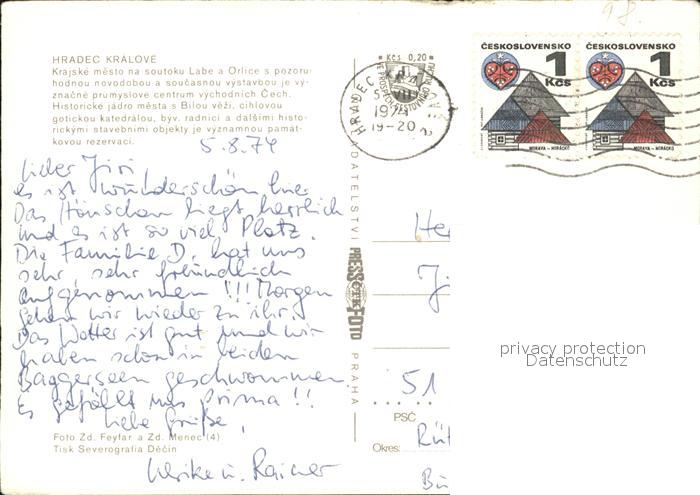 98.
HRADEC KRÁLOVÉ
Krajské město na soutoku Labe a Orlice s pozoru-
hodnou novodobou a současnou výstavbou je vý-
značné průmyslové centrum východních Čech.
Historické jádro města s Bílou věží, cihlovou
gotickou katedrálou, býv. radnicí a dalšími histo-
rickými stavebními objekty je významnou památ-
kovou rezervací.
5.8.74
Lieber Jiri
es ist wunderschön hier
Das Häuschen liegt herrlich
und es ist so viel Platz.
Die Familie D. hat uns
sehr, sehr freundlich
aufgenommen !!! Morgen
gehen wir wieder zu ihr.
Das Wetter ist gut und wir
haben schon in beiden
Baggerseen geschwommen.
Es gefällt uns prima !!
Liebe Grüße,
Ulrike u. Rainer
Foto Zd. Feyfar a Zd. Menec (4)
Tisk Severografia Děčín
VYDAVATELSTVÍ
PRESSFOTO
ČTK
PRAHA
Kčs 0,20
HRADEC
1974
19-20
ČESKOSLOVENSKO
1 Kčs
MORAVA - HORÁCKO
ČESKOSLOVENSKO
1 Kčs
MORAVA - HORÁCKO
He
Ji
51
PSČ
Okres:
Rüt
privacy protection
Datenschutz